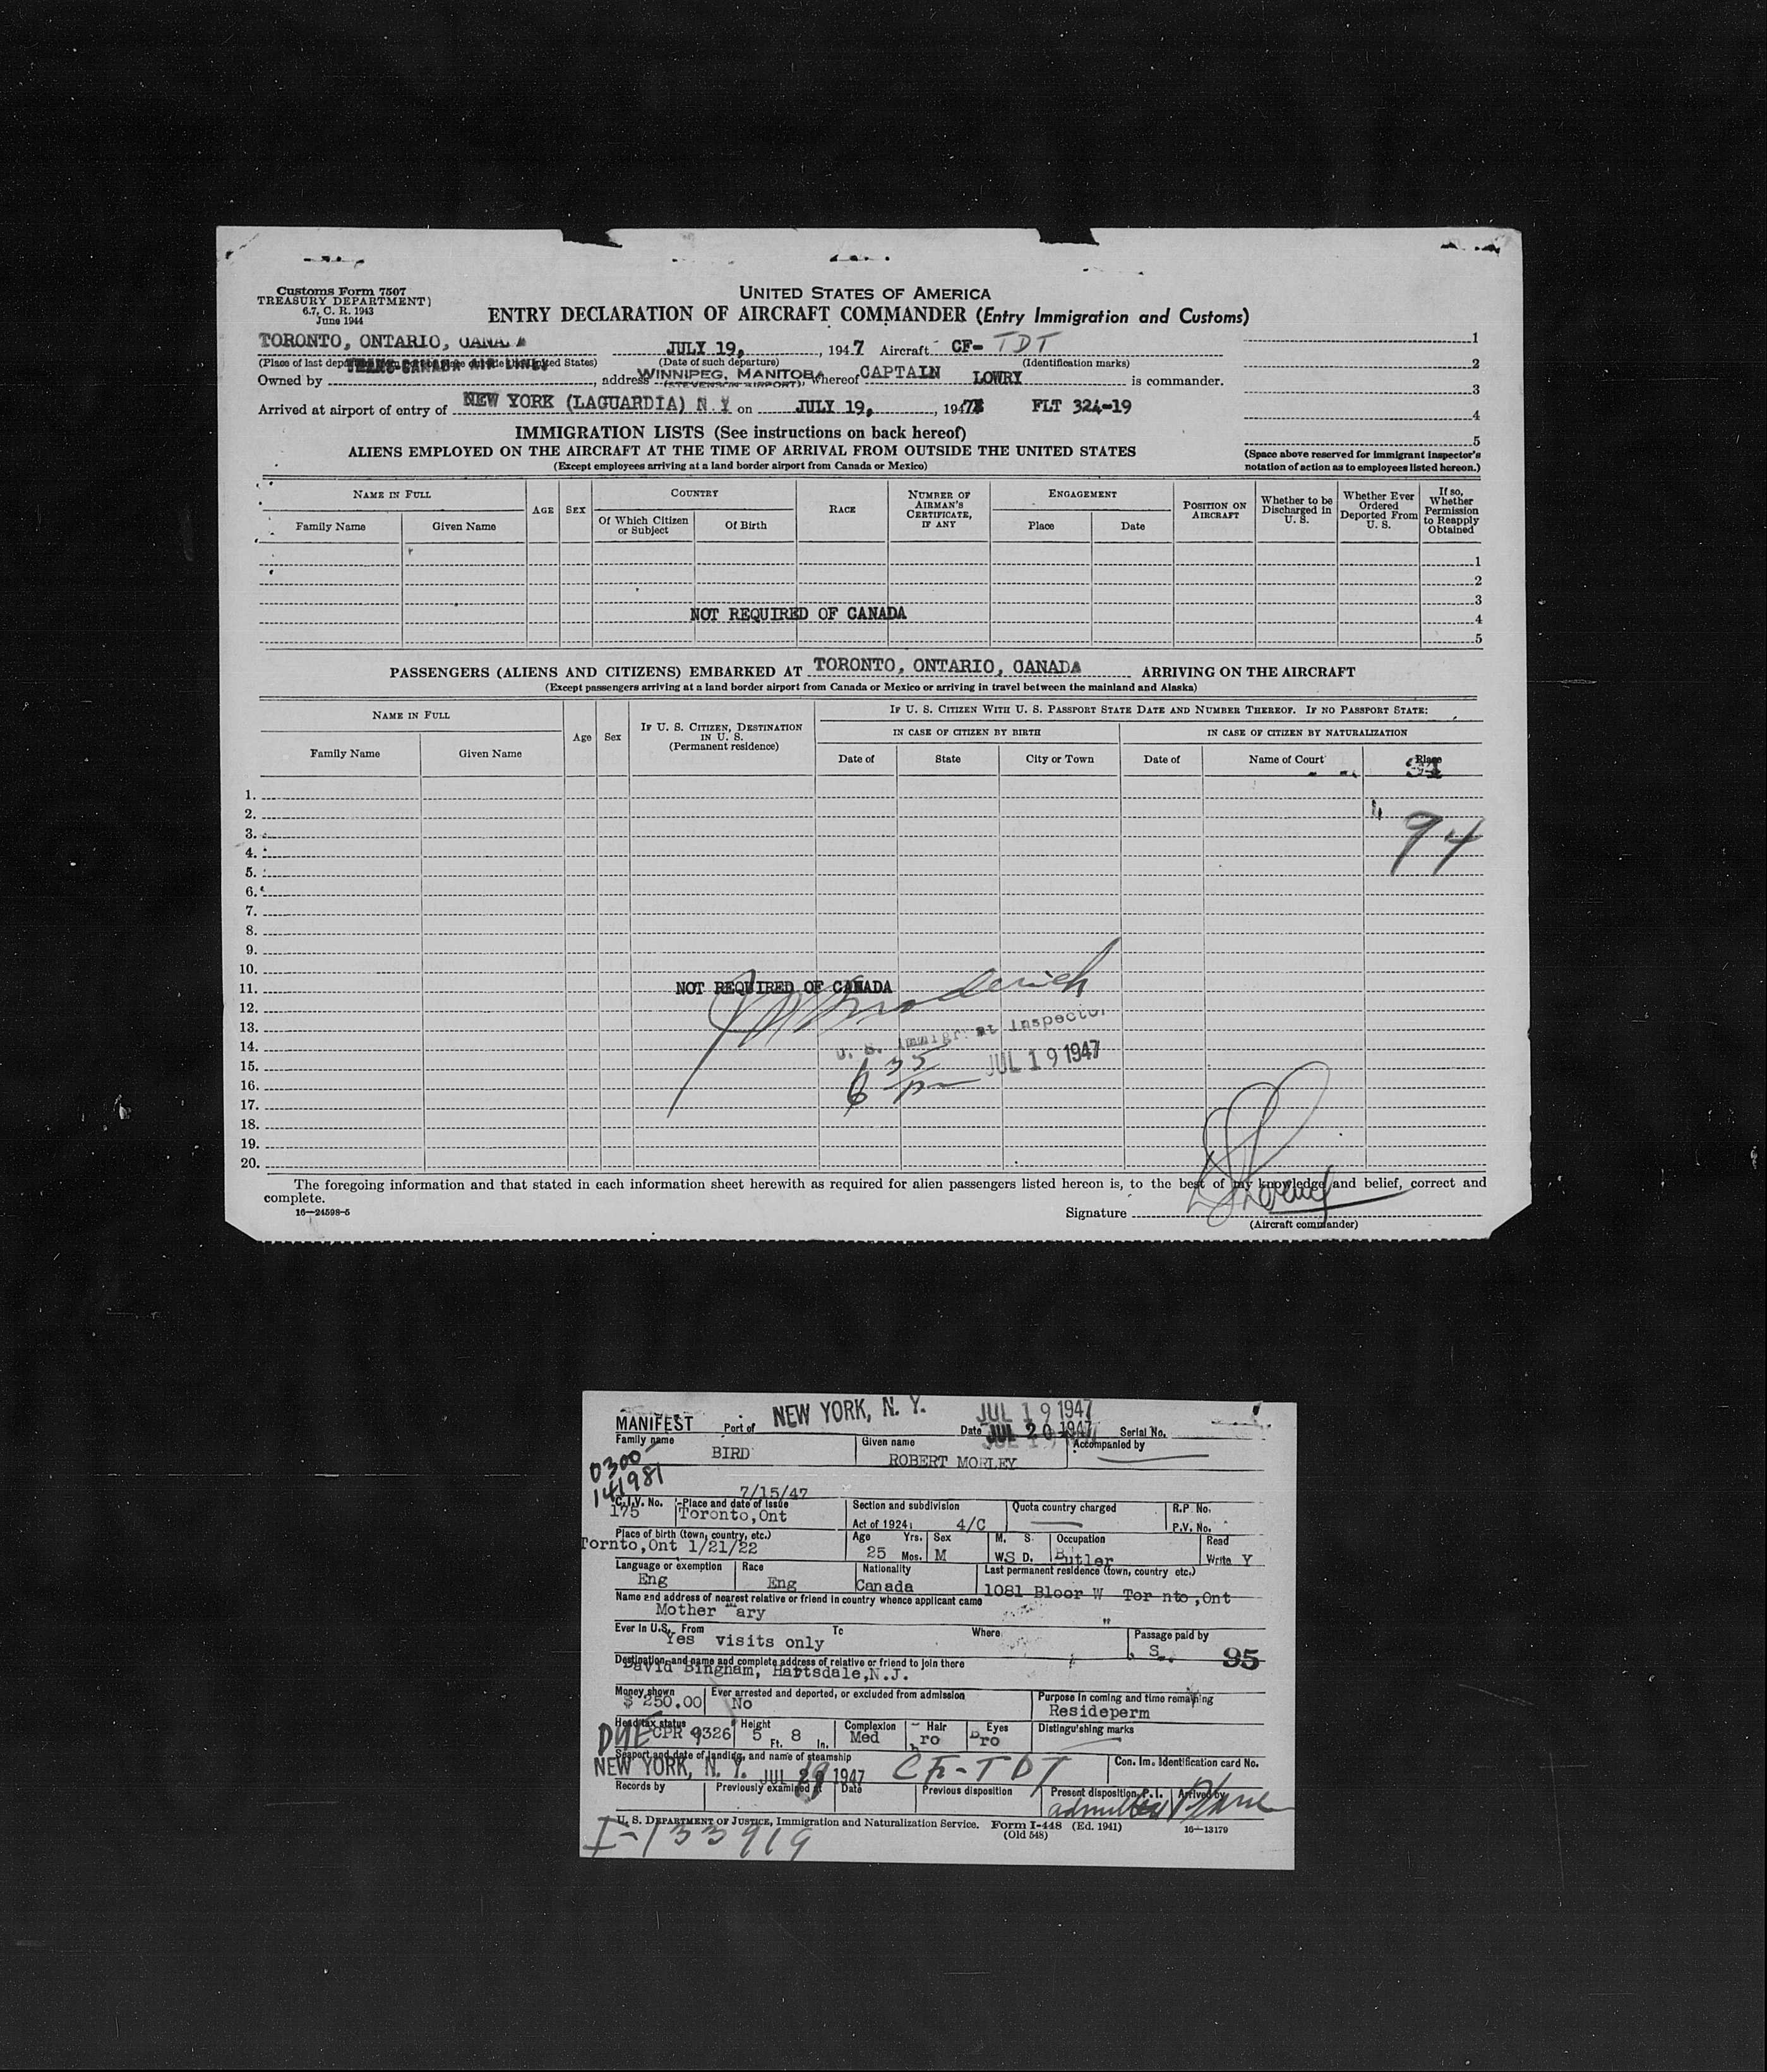 Customs Form 7507
TREASURY DEPARTMENT)
6.7, C. R. 1943
June 1944
UNITED STATES OF AMERICA
ENTRY DECLARATION OF AIRCRAFT COMMANDER (Entry Immigration and Customs)
TORONTO, ONTARIO, CANA A JULY 19, , 1947 Aircraft CF- TDT
(Date of such departure) (Identification marks)
TRANS-CANADA AIR LINES
Owned by , address WINNIPEG, MANITOBA (STEVENSON AIRPORT), whereof CAPTAIN LOWRY is commander.
Arrived at airport of entry of NEW YORK (LAGUARDIA) N.Y on JULY 19, , 1947 FLT 324-19
1
2
3
4
5
(Space above reserved for immigrant inspector's
notation of action as to employees listed hereon.)
IMMIGRATION LISTS (See instructions on back hereof)
ALIENS EMPLOYED ON THE AIRCRAFT AT THE TIME OF ARRIVAL FROM OUTSIDE THE UNITED STATES
(Except employees arriving at a land border airport from Canada or Mexico)
NAME IN FULL AGE SEX COUNTRY RACE NUMBER OF AIRMAN'S CERTIFICATE, IF ANY ENGAGEMENT POSITION ON AIRCRAFT Whether to be Discharged in U. S. Whether Ever Ordered Deported From U. S. If so, Whether Permission to Reapply Obtained
Family Name Given Name Of Which Citizen or Subject Of Birth Place Date
1
2
3
NOT REQUIRED OF CANADA
4
5
PASSENGERS (ALIENS AND CITIZENS) EMBARKED AT TORONTO, ONTARIO, CANADA ARRIVING ON THE AIRCRAFT
(Except passengers arriving at a land border airport from Canada or Mexico or arriving in travel between the mainland and Alaska)
NAME IN FULL Age Sex IF U. S. CITIZEN, DESTINATION IN U. S. (Permanent residence) IF U. S. CITIZEN WITH U. S. PASSPORT STATE DATE AND NUMBER THEREOF. IF NO PASSPORT STATE:
IN CASE OF CITIZEN BY BIRTH IN CASE OF CITIZEN BY NATURALIZATION
Family Name Given Name Date of State City or Town Date of Name of Court Place
1.
2.
94
3.
4.
5.
6.
7.
8.
9.
10.
11. NOT REQUIRED OF CANADA
12.
13.
U. S. Immigrant Inspector
14.
JUL 19 1947
15.
6 35 pm
16.
17.
18.
19.
20.
The foregoing information and that stated in each information sheet herewith as required for alien passengers listed hereon is, to the best of my knowledge and belief, correct and
complete.
16—24598-5
Signature
(Aircraft commander)
MANIFEST Port of NEW YORK, N. Y. Date JUL 19 1947 JUL 20 1947 Serial No.
Family name BIRD Given name ROBERT MORLEY Accompanied by
0300
141981
7/15/47
C.I.V. No. 175 Place and date of issue Toronto,Ont Section and subdivision Act of 1924: 4/C Quota country charged R.P. No. P.V. No.
Place of birth (town, country, etc.) Tornto,Ont 1/21/22 Age 25 Yrs. Mos. Sex M M. S. W. S D. Occupation Butler Read Write Y
Language or exemption Eng Race Eng Nationality Canada Last permanent residence (town, country etc.) 1081 Bloor W Tor nto,Ont
Name and address of nearest relative or friend in country whence applicant came
Mother Mary "
Ever in U.S. From Yes visits only To Where Passage paid by S.
95
Destination, and name and complete address of relative or friend to join there
David Bingham, Hartsdale,N.J.
Money shown $ 250.00 Ever arrested and deported, or excluded from admission No Purpose in coming and time remaining Resideperm
Head tax status DUE CPR 9326 Height 5 Ft. 8 In. Complexion Med Hair bro Eyes Bro Distinguishing marks
Seaport and date of landing, and name of steamship
NEW YORK, N. Y. JUL 1947 CF-TDT Con. Im. Identification card No.
Records by Previously examined at Date Previous disposition Present disposition P.I. admitted Arrived by Plane
U. S. DEPARTMENT OF JUSTICE, Immigration and Naturalization Service. Form I-448 (Ed. 1941) 16—13179
(Old 548)
I-133919